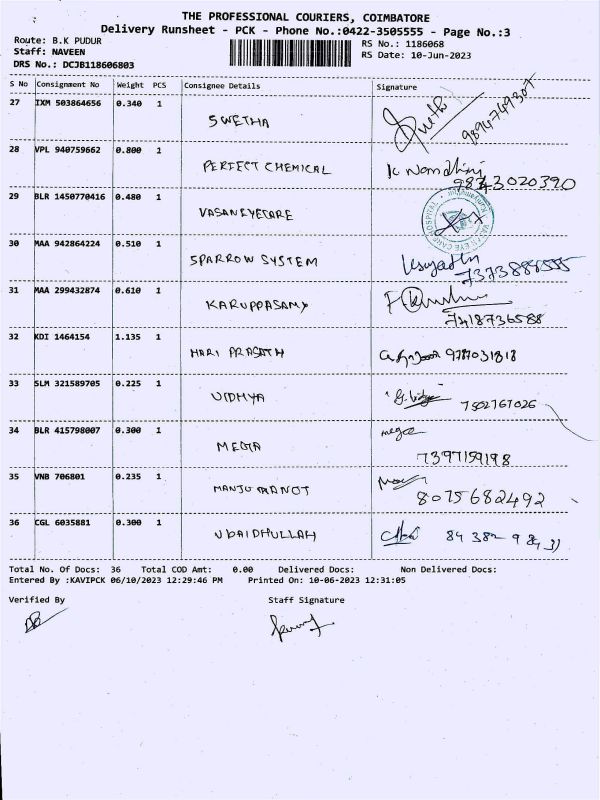 THE PROFESSIONAL COURIERS, COIMBATORE
Delivery Runsheet - PCK - Phone No.:0422-3505555 - Page No.:3
Route: B.K PUDUR RS No.: 1186068
Staff: NAVEEN RS Date: 10-Jun-2023
DRS No.: DCJB118606803
S No Consignment No Weight PCS Consignee Details Signature
27 IXM 503864656 0.340 1 SWETHA
28 VPL 940759662 0.800 1 PERFECT CHEMICAL
29 BLR 1450770416 0.480 1 VASANEYECARE
30 MAA 942864224 0.510 1 SPARROW SYSTEM
31 MAA 299432874 0.610 1 KARUPPASAMY
7418736588
32 KDI 1464154 1.135 1 HARI PRASATH
33 SLM 321589705 0.225 1 VIDHYA 7502767026
34 BLR 415798007 0.300 1 MEGA mega
7397159198
35 VNB 706801 0.235 1
8075682492
36 CGL 6035881 0.300 1 UBAIDHULLAH
Total No. Of Docs: 36 Total COD Amt: 0.00 Delivered Docs: Non Delivered Docs:
Entered By :KAVIPCK 06/10/2023 12:29:46 PM Printed On: 10-06-2023 12:31:05
Verified By Staff Signature